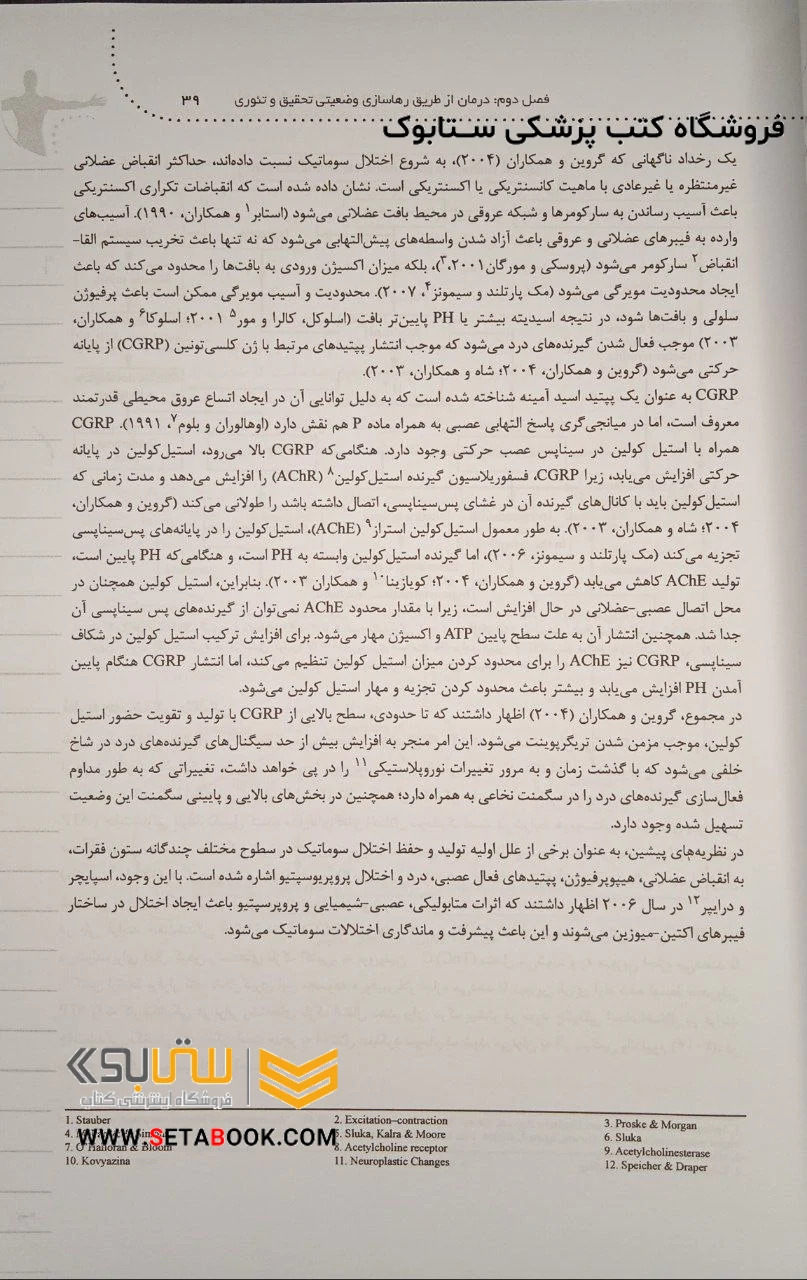 فصل دوم: درمان از طریق رهاسازی وضعیتی تحقیق و تئوری ۳۹
فروشگاه کتب پزشکی ستابوک
یک رخداد ناگهانی که گروین و همکاران (۲۰۰۴)، به شروع اختلال سوماتیک نسبت داده‌اند، حداکثر انقباض عضلانی
غیرمنتظره یا غیرعادی با ماهیت کانسنتریکی یا اکسنتریکی است. نشان داده شده است که انقباضات تکراری اکسنتریکی
باعث آسیب رساندن به سارکومرها و شبکه عروقی در محیط بافت عضلانی می‌شود (استابر۱ و همکاران، ۱۹۹۰). آسیب‌های
وارده به فیبرهای عضلانی و عروقی باعث آزاد شدن واسطه‌های پیش‌التهابی می‌شود که نه تنها باعث تخریب سیستم القا-
انقباض۲ سارکومر می‌شود (پروسکی و مورگان۳،۲۰۰۱)، بلکه میزان اکسیژن ورودی به بافت‌ها را محدود می‌کند که باعث
ایجاد محدودیت مویرگی می‌شود (مک پارتلند و سیمونز۴، ۲۰۰۷). محدودیت و آسیب مویرگی ممکن است باعث پرفیوژن
سلولی و بافت‌ها شود، در نتیجه اسیدیته بیشتر یا PH پایین‌تر بافت (اسلوکل، کالرا و مور۵ ۲۰۰۱؛ اسلوکا۶ و همکاران،
۲۰۰۳) موجب فعال شدن گیرنده‌های درد می‌شود که موجب انتشار پپتیدهای مرتبط با ژن کلسی‌تونین (CGRP) از پایانه
حرکتی می‌شود (گروین و همکاران، ۲۰۰۴؛ شاه و همکاران، ۲۰۰۳).
CGRP به عنوان یک پپتید اسید آمینه شناخته شده است که به دلیل توانایی آن در ایجاد اتساع عروق محیطی قدرتمند
معروف است، اما در میانجی‌گری پاسخ التهابی عصبی به همراه ماده P هم نقش دارد (اوهالوران و بلوم۷، ۱۹۹۱). CGRP
همراه با استیل کولین در سیناپس عصب حرکتی وجود دارد. هنگامی‌که CGRP بالا می‌رود، استیل‌کولین در پایانه
حرکتی افزایش می‌یابد، زیرا CGRP، فسفوریلاسیون گیرنده استیل‌کولین۸ (AChR) را افزایش می‌دهد و مدت زمانی که
استیل‌کولین باید با کانال‌های گیرنده آن در غشای پس‌سیناپسی، اتصال داشته باشد را طولانی می‌کند (گروین و همکاران،
۲۰۰۴؛ شاه و همکاران، ۲۰۰۳). به طور معمول استیل‌کولین استراز۹ (AChE)، استیل‌کولین را در پایانه‌های پس‌سیناپسی
تجزیه می‌کند (مک پارتلند و سیمونز، ۲۰۰۶)، اما گیرنده استیل‌کولین وابسته به PH است، و هنگامی‌که PH پایین است،
تولید AChE کاهش می‌یابد (گروین و همکاران، ۲۰۰۴؛ کویازینا۱۰ و همکاران ۲۰۰۳). بنابراین، استیل کولین همچنان در
محل اتصال عصبی-عضلانی در حال افزایش است، زیرا با مقدار محدود AChE نمی‌توان از گیرنده‌های پس سیناپسی آن
جدا شد. همچنین انتشار آن به علت سطح پایین ATP و اکسیژن مهار می‌شود. برای افزایش ترکیب استیل کولین در شکاف
سیناپسی، CGRP نیز AChE را برای محدود کردن میزان استیل کولین تنظیم می‌کند، اما انتشار CGRP هنگام پایین
آمدن PH افزایش می‌یابد و بیشتر باعث محدود کردن تجزیه و مهار استیل کولین می‌شود.
در مجموع، گروین و همکاران (۲۰۰۴) اظهار داشتند که تا حدودی، سطح بالایی از CGRP با تولید و تقویت حضور استیل
کولین، موجب مزمن شدن تریگرپوینت می‌شود. این امر منجر به افزایش بیش از حد سیگنال‌های گیرنده‌های درد در شاخ
خلفی می‌شود که با گذشت زمان و به مرور تغییرات نوروپلاستیکی۱۱ را در پی خواهد داشت، تغییراتی که به طور مداوم
فعال‌سازی گیرنده‌های درد را در سگمنت نخاعی به همراه دارد؛ همچنین در بخش‌های بالایی و پایینی سگمنت این وضعیت
تسهیل شده وجود دارد.
در نظریه‌های پیشین، به عنوان برخی از علل اولیه تولید و حفظ اختلال سوماتیک در سطوح مختلف چندگانه ستون فقرات،
به انقباض عضلانی، هیپوپرفیوژن، پپتیدهای فعال عصبی، درد و اختلال پروپریوسپتیو اشاره شده است. با این وجود، اسپایچر
و دراپپر۱۲ در سال ۲۰۰۶ اظهار داشتند که اثرات متابولیکی، عصبی-شیمیایی و پروپرسپتیو باعث ایجاد اختلال در ساختار
فیبرهای اکتین-میوزین می‌شوند و این باعث پیشرفت و ماندگاری اختلالات سوماتیک می‌شود.
ستابوک
فروشگاه اینترنتی کتاب
1. Stauber 2. Excitation–contraction 3. Proske & Morgan
4. 5. Sluka, Kalra & Moore 6. Sluka
WWW.SETABOOK.COM
7. O'Halloran & Bloom 8. Acetylcholine receptor 9. Acetylcholinesterase
10. Kovyazina 11. Neuroplastic Changes 12. Speicher & Draper